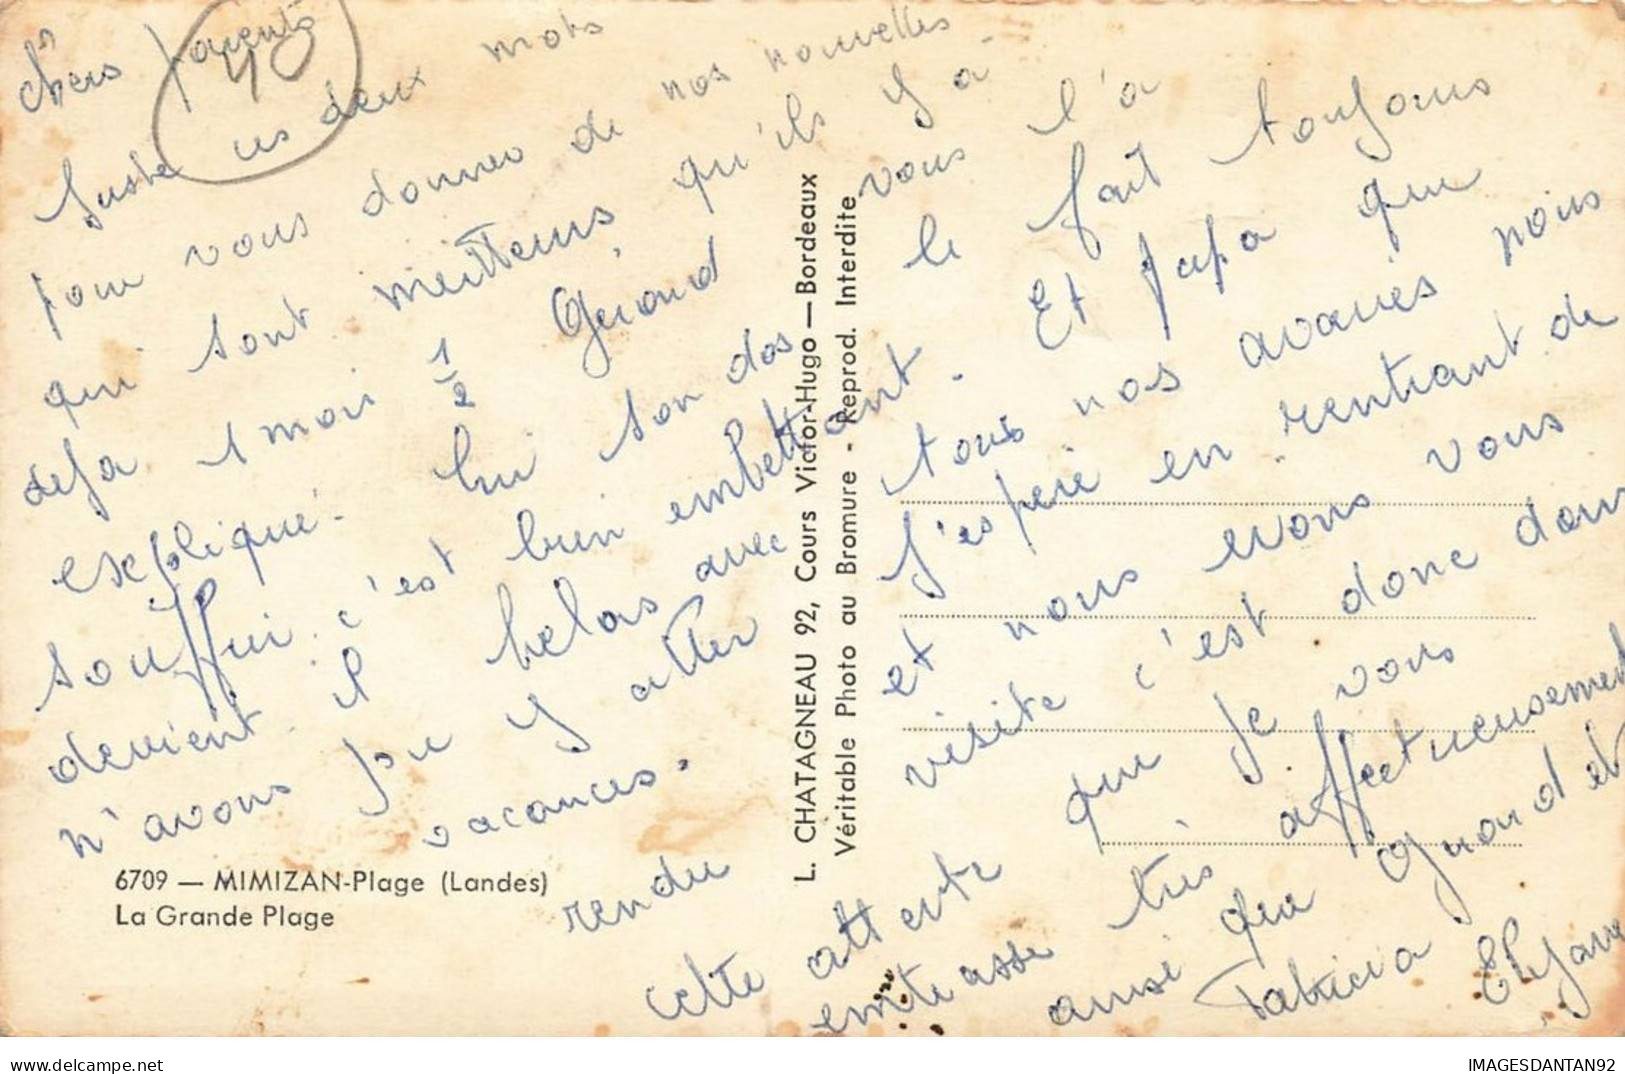 Chers Parents
40
Juste ces deux mots
pour vous donner de nos nouvelles
qui sont meilleurs qu'ils y a
deja 1 mois 1/2 Gérard vous l'a
expliqué. lui son dos le fait toujours
souffrir. c'est bien embettant. Et papa que
devient il helas avec tous nos avaries nous
n'avons pu y aller J'espère en rentrant de
vacances. et nous vous
rendre visite c'est donc dans
cette attente que je vous
embrasse très affectueusement
ainsi que Gérard et
Patricia Elyane
6709 — MIMIZAN-Plage (Landes)
La Grande Plage
L. CHATAGNEAU 92, Cours Victor-Hugo — Bordeaux
Véritable Photo au Bromure - Reprod. Interdite
www.delcampe.net
IMAGESDANTAN92